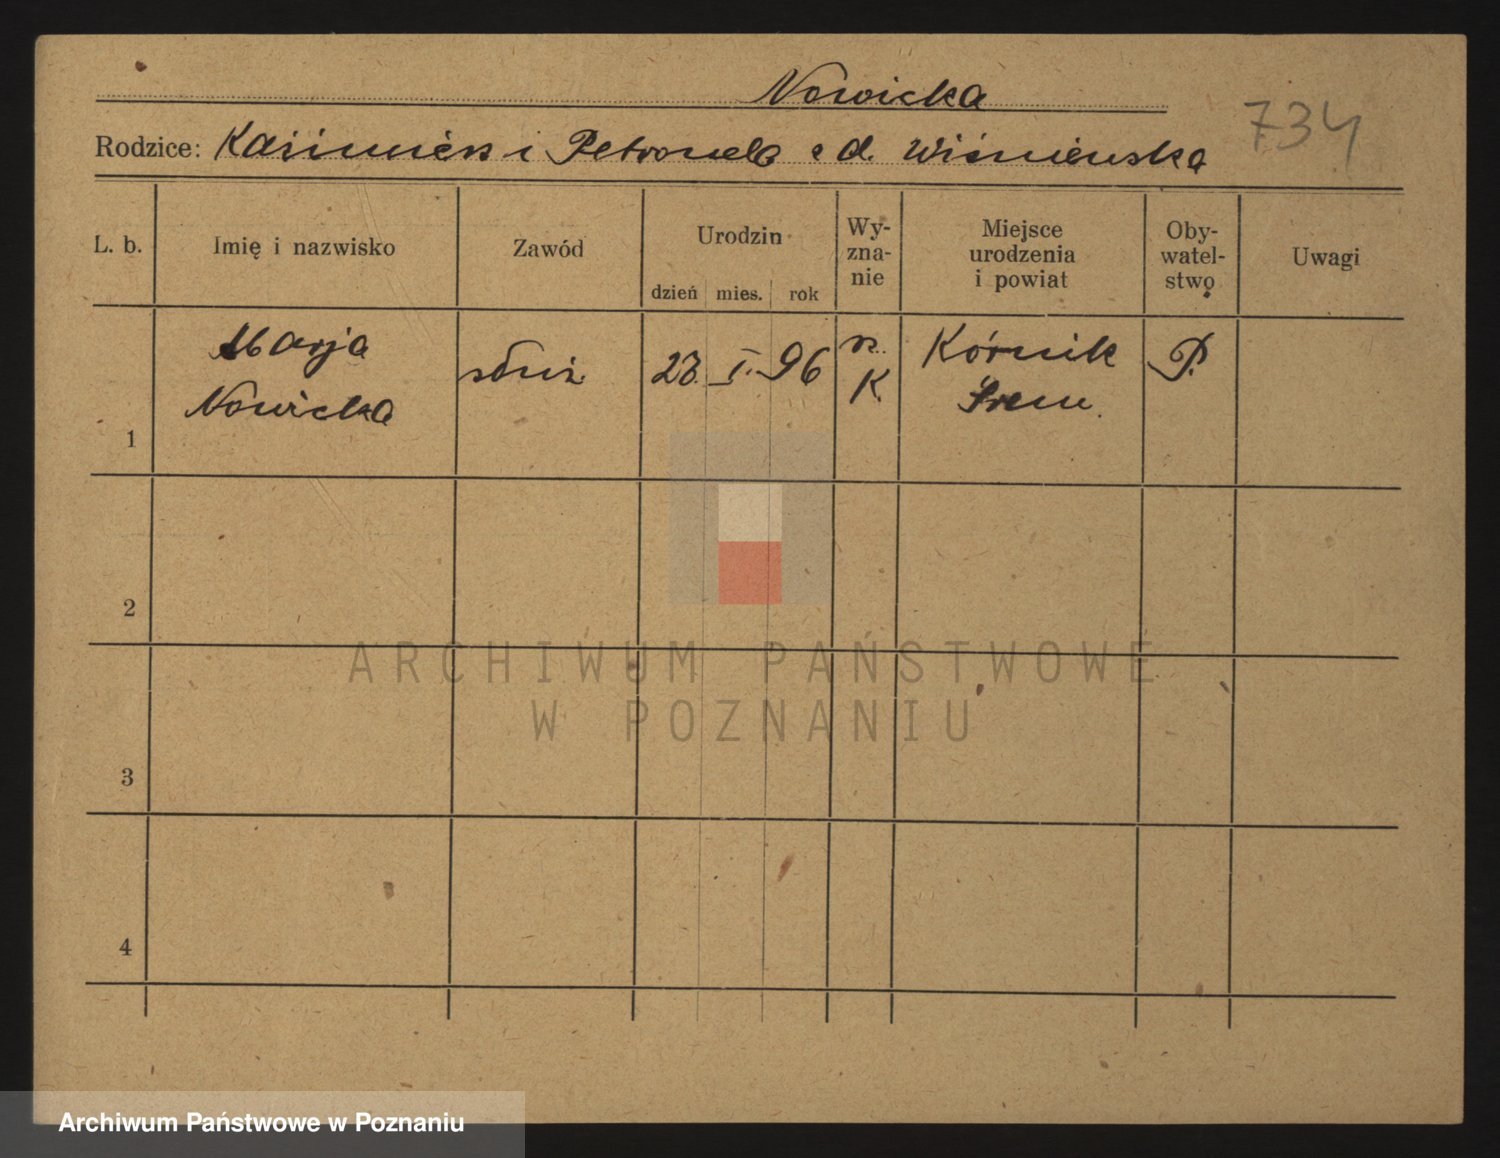 Nowicka
734
Rodzice: Kazimierz i Petronela z d. Wiśniewska
L. b. Imię i nazwisko Zawód Urodzin dzień mies. rok Wy-zna-nie Miejsce urodzenia i powiat Oby-watel-stwo Uwagi
Marja służ. 23. I. 96 rz. Kórnik P.
Nowicka K. Śrem.
1
2
3
4
ARCHIWUM PAŃSTWOWE
W POZNANIU
Archiwum Państwowe w Poznaniu